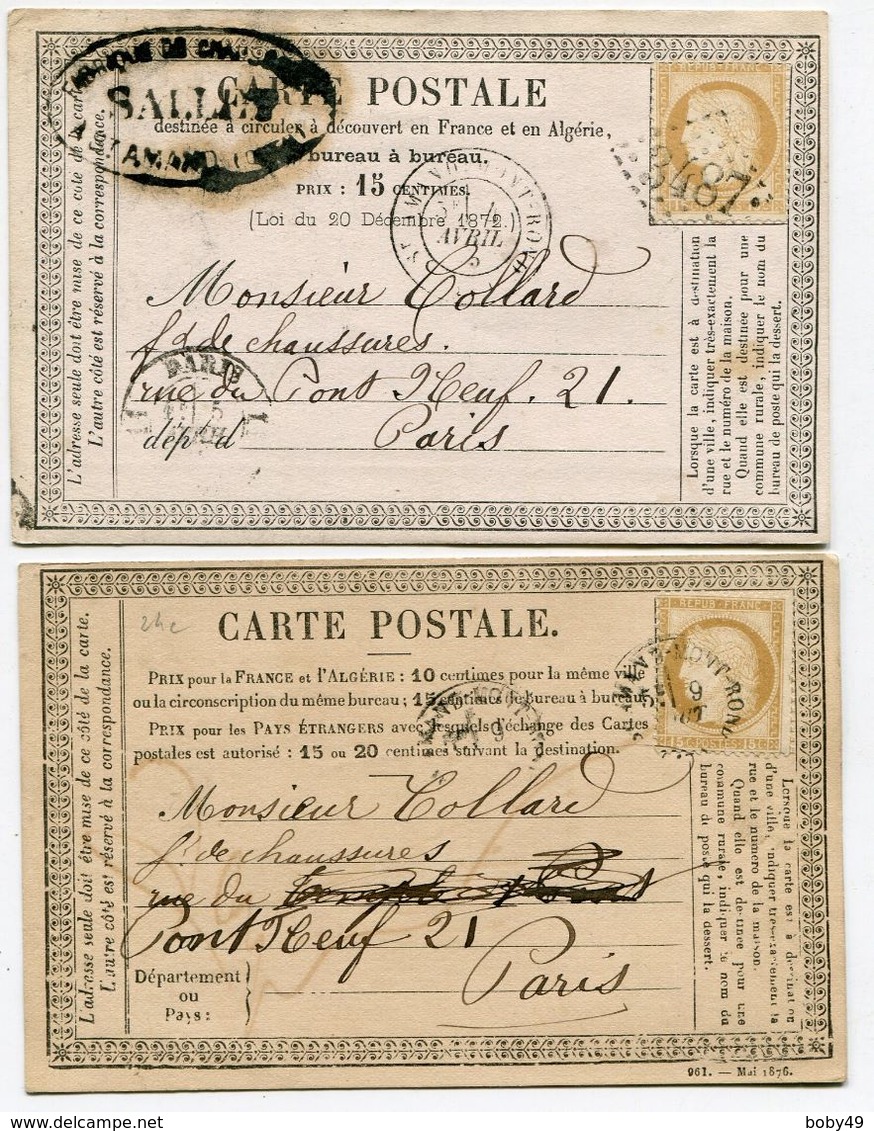 FABRIQUE DE
SALLE
CARTE POSTALE
destinée à circuler à découvert en France et en Algérie,
bureau à bureau.
PRIX : 15 CENTIMES.
(Loi du 20 Décembre 1872.)
REPUB FRANC
3487
ST AMAND-MONT-ROND
4
AVRIL
Monsieur Collard
fd de chaussures.
rue du Pont Neuf. 21.
dépt d Paris
PARIS
5
L'adresse seule doit être mise de ce côté de la carte.
L'autre côté est réservé à la correspondance.
Lorsque la carte est à destination
d'une ville, indiquer très-exactement la
rue et le numéro de la maison.
Quand elle est destinée pour une
commune rurale, indiquer le nom du
bureau de poste qui la dessert.
24c
CARTE POSTALE.
PRIX pour la FRANCE et l'ALGÉRIE : 10 centimes pour la même ville
ou la circonscription du même bureau ; 15 centimes de bureau à bureau
PRIX pour les PAYS ÉTRANGERS avec lesquels l'échange des Cartes
postales est autorisé : 15 ou 20 centimes suivant la destination.
REPUB FRANC
15 C POSTES 15 C
AMAND-MONT-ROND
9
Monsieur Collard
ft de chaussures
rue du
Pont Neuf 21
Paris
Département
ou
Pays :
L'adresse seule doit être mise de ce côté de la carte.
L'autre côté est réservé à la correspondance.
Lorsque la carte est à destination
d'une ville, indiquer très-exactement la
rue et le numéro de la maison.
Quand elle est destinée pour une
commune rurale, indiquer le nom du
bureau de poste qui la dessert.
961. — Mai 1876.
boby49